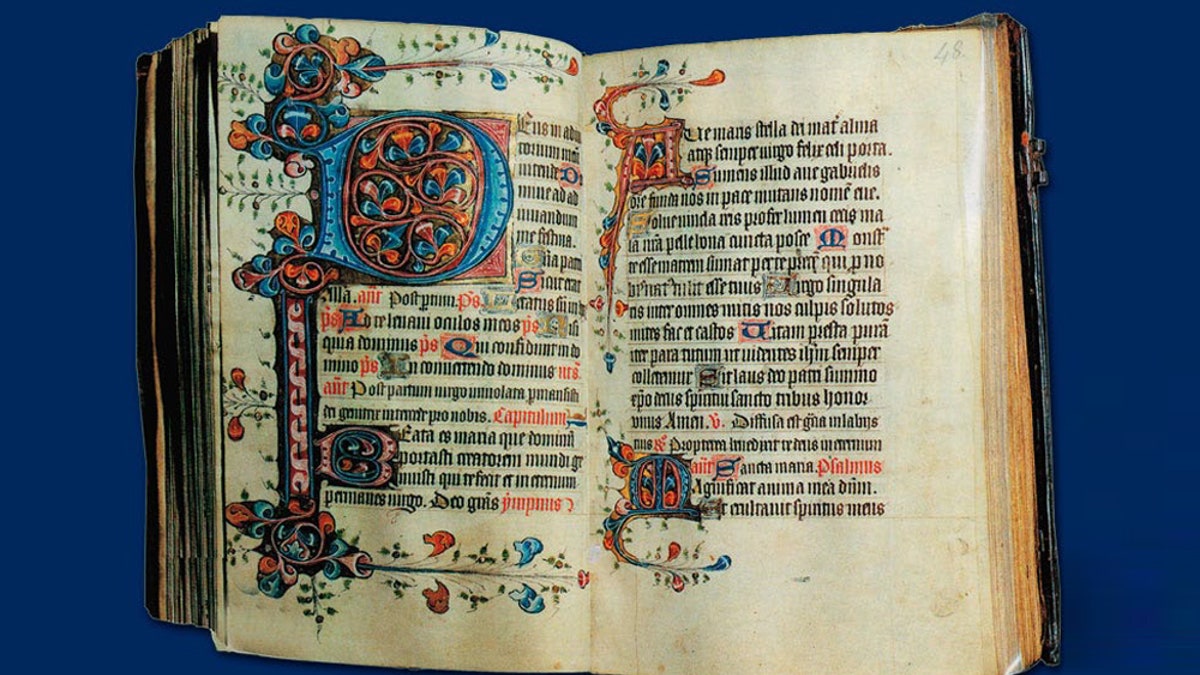 Deus in adiu
torium meū
intende Do
mine ad ad
iuuandum
me festina.
Gl̄ia patri
Sicut erat
illa. añ Post partum. p̄s. Letatus sum
p̄s Ad te leuaui oculos meos p̄s Nisi
quia dominus p̄s Qui confidunt in do
mino p̄s In conuertendo dominus
añ Post partum uirgo inuiolata pmansisti
dei genitrix intercede pro nobis. Capitulum
Beata es maria que dominū
portasti creatorem mundi ge
nuisti qui te fecit et in eternum
permanes uirgo. Deo grās ympnus
48
Aue maris stella dei mat̄ alma
atq̄ semper uirgo felix celi porta.
Sumens illud aue gabrielis
ore funda nos in pace mutans nomē eue.
Solue uincla reis profer lumen cecis ma
la nr̄a pelle bona cuncta posce Monst̄
te esse matrem sumat per te prec̄ qui p no
bis nat' tulit esse tuus Uirgo singula
ris inter omnes mitis nos culpis solutos
mites fac et castos Uitam presta purā
iter para tutum ut uidentes ih̄m semper
colletemur Sit laus deo patri summo
xp̄o decus spiritui sancto tribus honor
unus Amen. v̄. Diffusa est gr̄a in labijs
tuis R̄ Propterea benedixit te deus in eternum
añ Sancta maria. Psalmus
Magnificat anima mea dūm.
Et exultauit spiritus meus